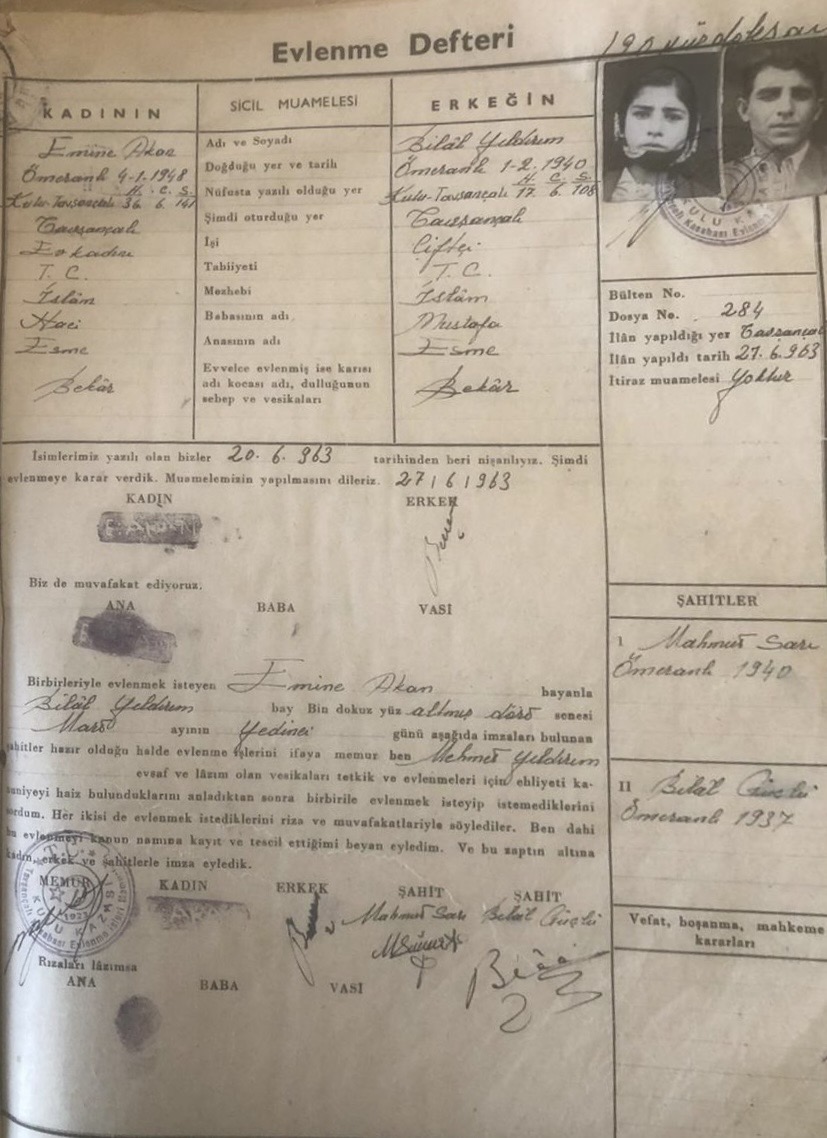 Evlenme Defteri
KADININ
SİCİL MUAMELESİ
ERKEĞİN
Emine Akan
Adı ve Soyadı
Bilâl Yeldırım
Ömeranlı 4-1.1948
Doğduğu yer ve tarih
Ömeranlı 1-2.1940
H. C. S.
H. C. S.
Kulu-Tavşançalı 36 6 141
Nüfusta yazılı olduğu yer
Kulu-Tavşançalı 17 6 108
Tavşançalı
Şimdi oturduğu yer
Tavşançalı
Ev kadını
İşi
Çiftçi
T. C.
Tabiiyeti
T. C.
İslâm
Mezhebi
İslâm
Haci
Babasının adı
Mustafa
Esme
Anasının adı
Esme
Bekâr
Evvelce evlenmiş ise karısı
adı kocası adı, dulluğunun
sebep ve vesikaları
Bekâr
Bülten No.
Dosya No. 284
İlân yapıldığı yer Tavşançalı
İlân yapıldı tarih 27.6.963
İtiraz muamelesi Yoktur
İsimlerimiz yazılı olan bizler 20.6.963 tarihinden beri nişanlıyız. Şimdi
evlenmeye karar verdik. Muamelemizin yapılmasını dileriz. 27/6/963
KADIN
ERKEK
E. AKAN
Biz de muvafakat ediyoruz.
ANA
BABA
VASİ
Birbirleriyle evlenmek isteyen Emine Akan bayanla
Bilâl Yeldırım bay Bin dokuz yüz altmış dört senesi
Mart ayının Yedinci günü aşağıda imzaları bulunan
şahitler hazır olduğu halde evlenme işlerini ifaya memur ben Mehmet Yıldırım
evsaf ve lâzım olan vesikaları tetkik ve evlenmeleri için ehliyeti ka-
nuniyeyi haiz bulunduklarını anladıktan sonra birbirile evlenmek isteyip istemediklerini
sordum. Her ikisi de evlenmek istediklerini riza ve muvafakatlariyle söylediler. Ben dahi
bu evlenmeyi kanun namına kayıt ve tescil ettiğimi beyan eyledim. Ve bu zaptın altına
kadın, erkek ve şahitlerle imza eyledik.
MEMUR
KADIN
ERKEK
ŞAHİT
ŞAHİT
Mahmut Sarı
Bilâl Güçlü
Rızaları lâzımsa
ANA
BABA
VASİ
ŞAHİTLER
I Mahmut Sarı
Ömeranlı 1940
II Bilâl Güçlü
Ömeranlı 1937
Vefat, boşanma, mahkeme
kararları
T. C.
KULU KAZASI